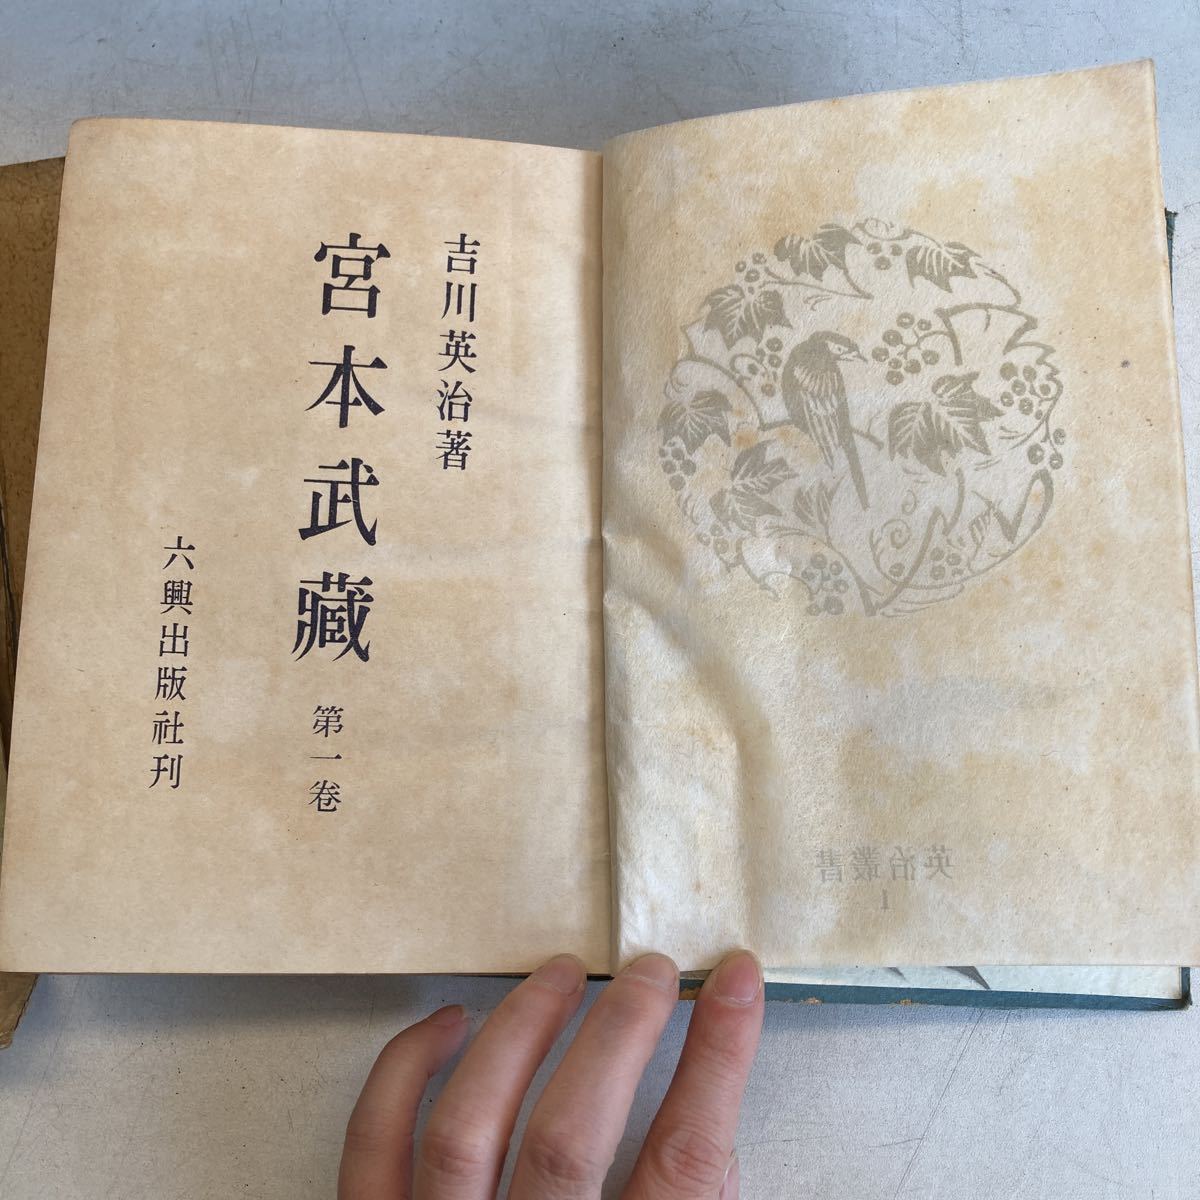 英治叢書
1
吉川英治著
宮本武藏 第一卷
六興出版社刊